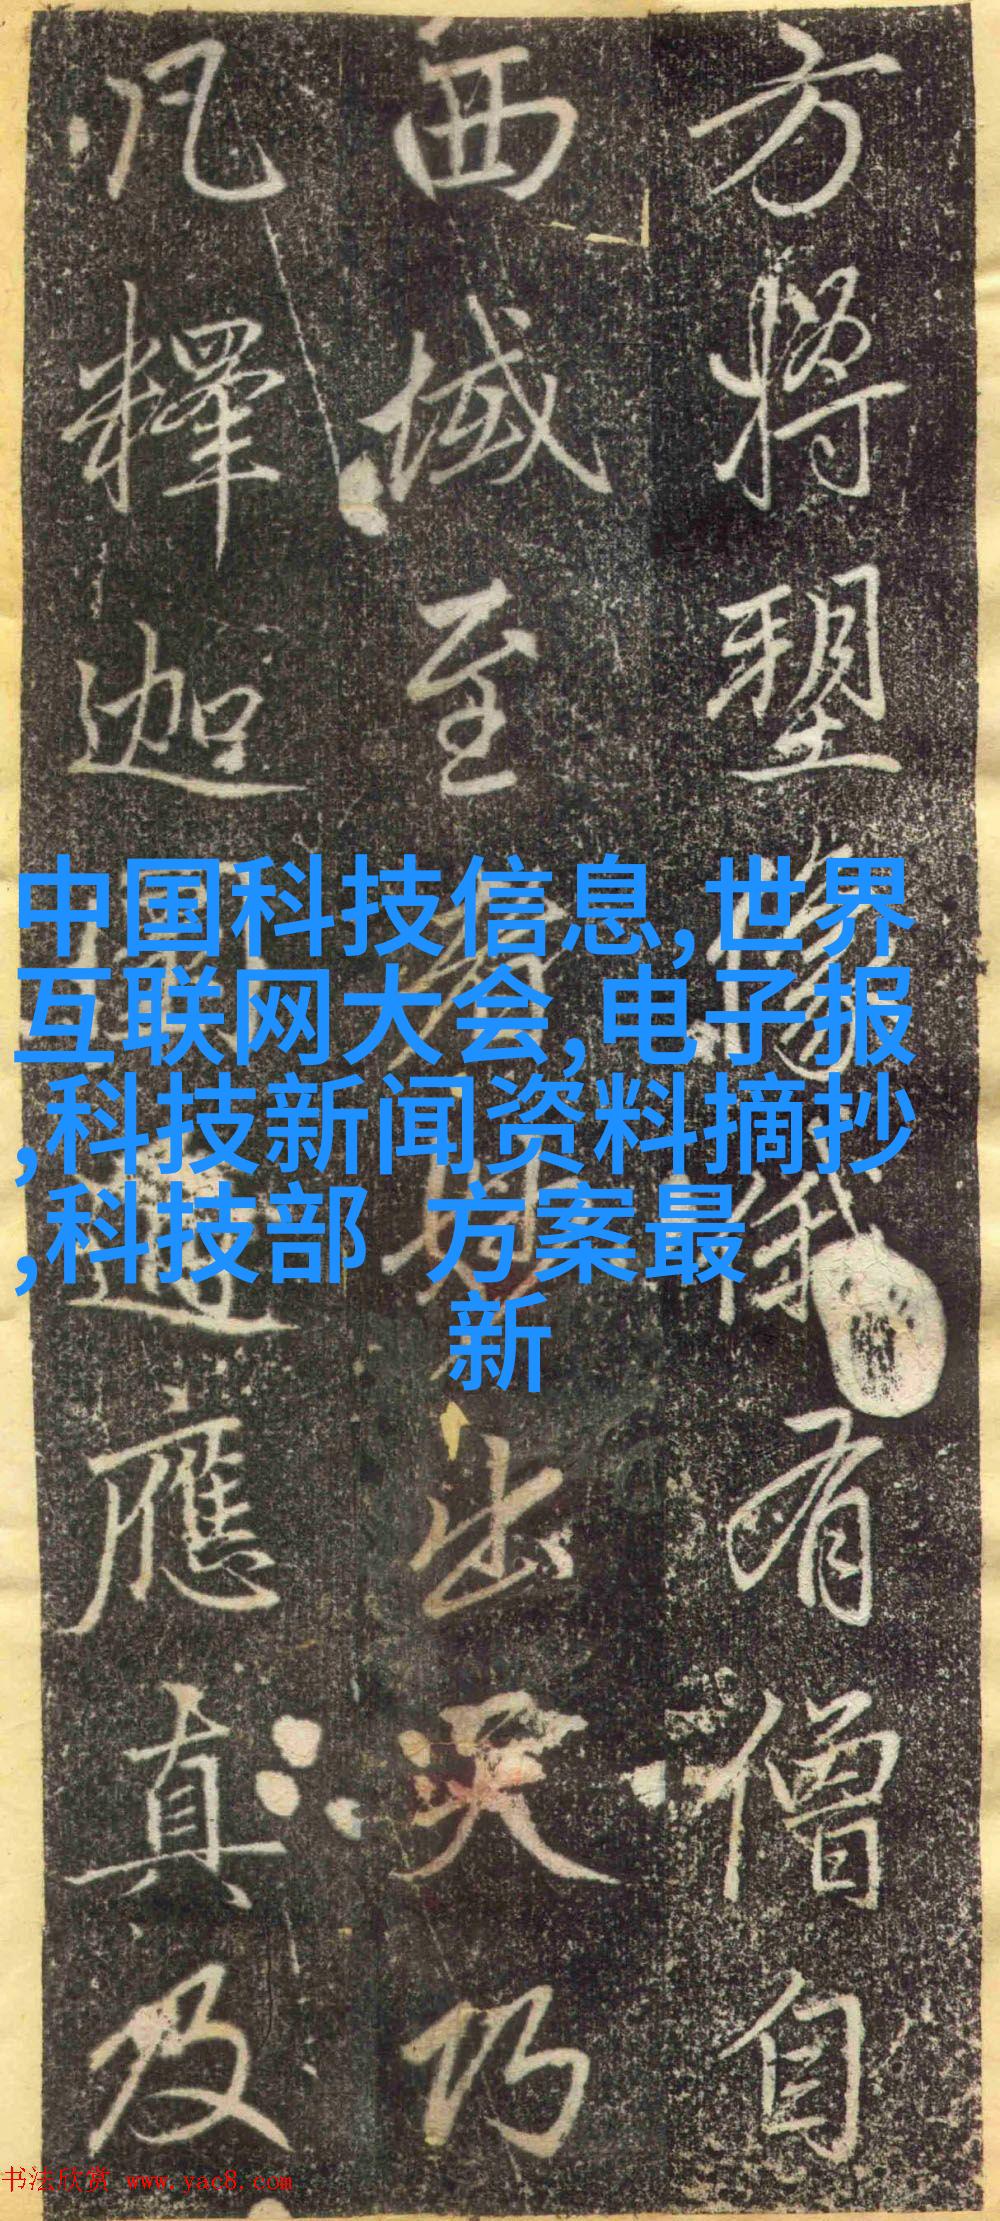 方將塑像俄有僧自
西域至出天巧
凡釋迦應真及
中国科技信息,世界
互联网大会,电子报
,科技新闻资料摘抄
,科技部 方案最
新
书法欣赏 www.yac8.com